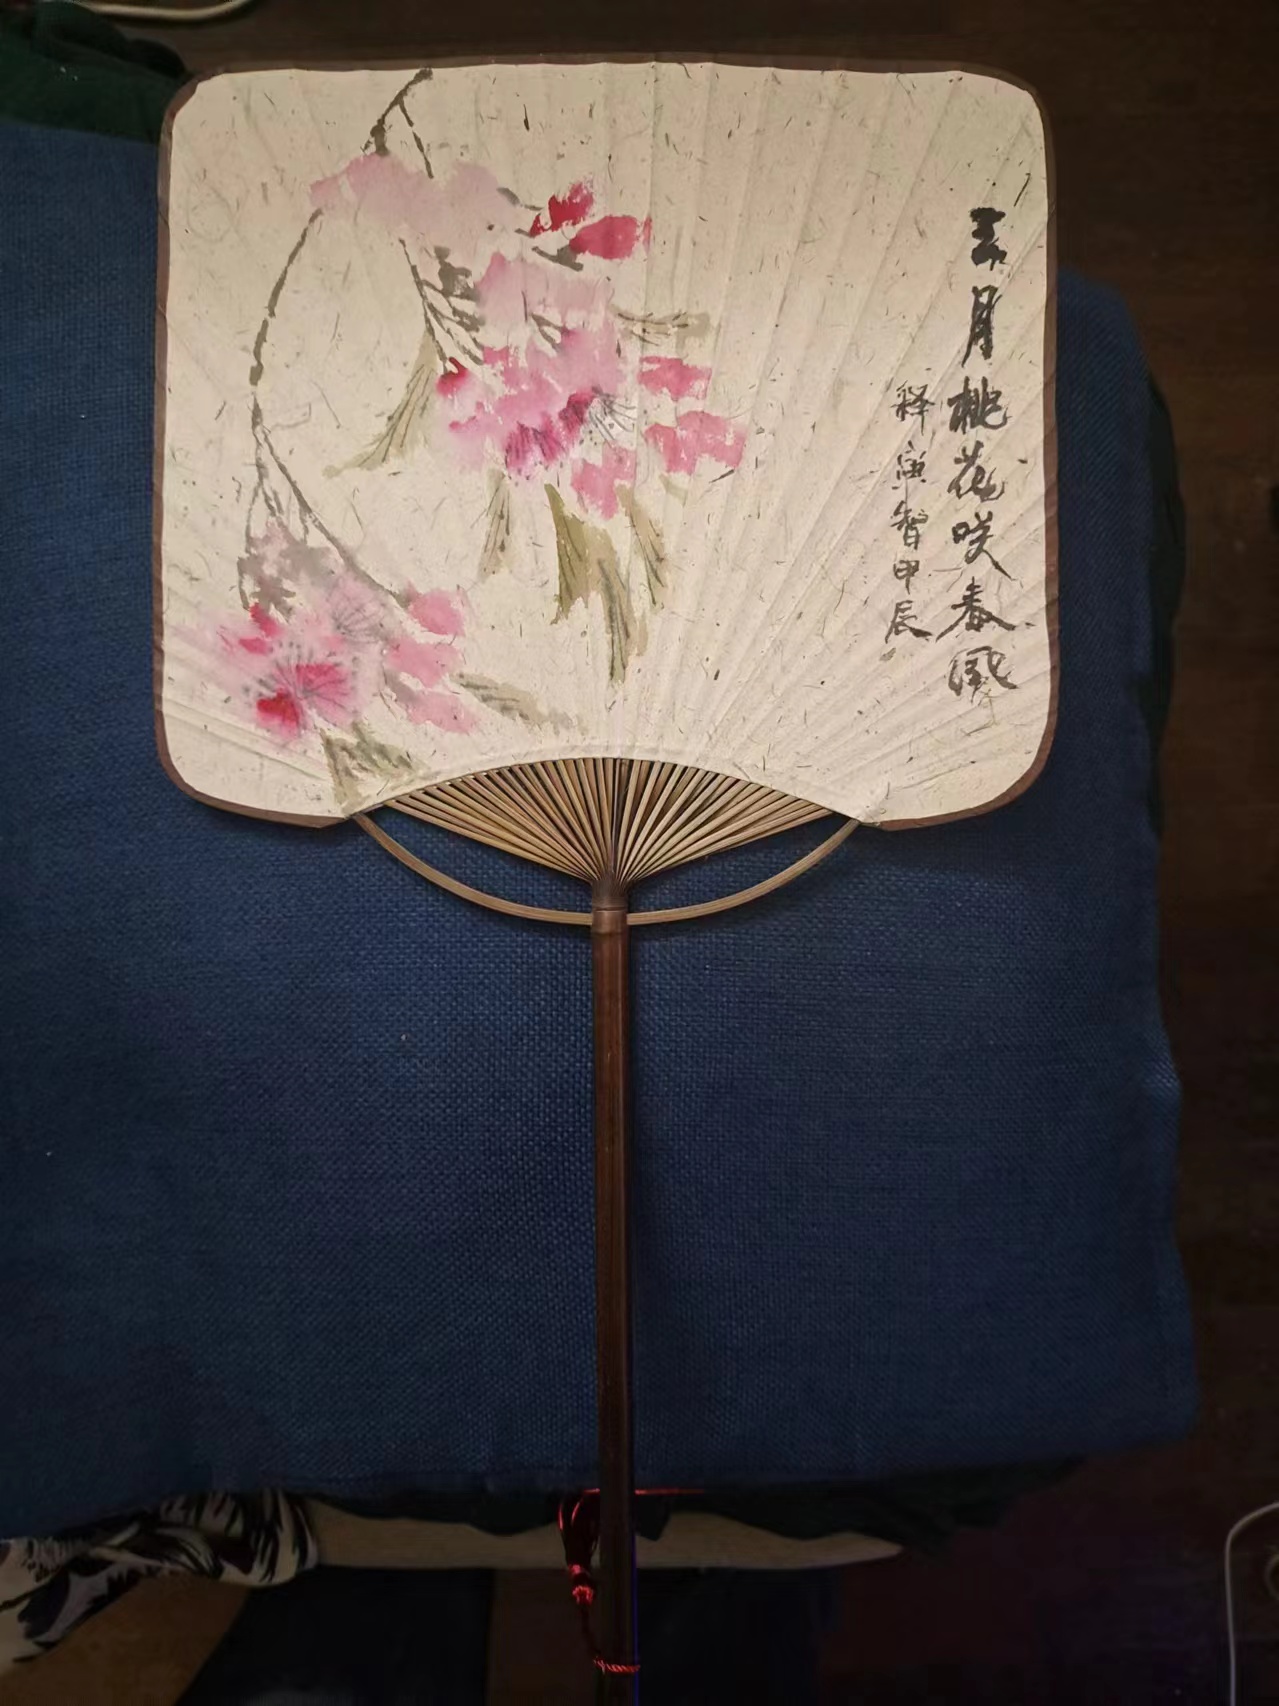 三月桃花咲春風
释寅智甲辰